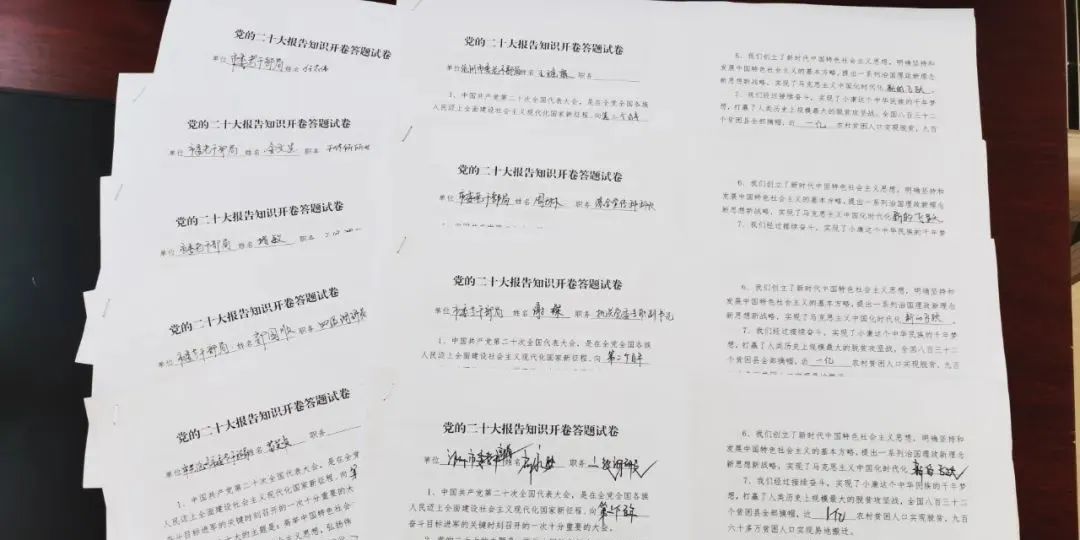 党的二十大报告知识开卷答题试卷
单位 市委老干部局 姓名
党的二十大报告知识开卷答题试卷
单位 市委老干部局 姓名 职务
党的二十大报告知识开卷答题试卷
单位 市委老干部局 姓名 职务
党的二十大报告知识开卷答题试卷
单位 市委老干部局 姓名 郭国顺 职务 四级调研员
党的二十大报告知识开卷答题试卷
单位 姓名 职务
1、中国共产党第二十次全国代表大会，是在全党全国各族
人民迈上全面建设社会主义现代化国家新征程、向第
奋斗目标进军的关键时刻召开的一次十分重要的大
2、大会的主题是：高举中国特色社会
党的二十大报告知识开卷答题试卷
单位 市委老干部局 姓名 职务
1、中国共产党第二十次全国代表大会，是在全党全国各族
人民迈上全面建设社会主义现代化国家新征程、向第二个百年
党的二十大报告知识开卷答题试卷
单位 市委老干部局 姓名 职务 综合宣传科科长
党的二十大报告知识开卷答题试卷
单位 市委老干部局 姓名 职务 机关党委专职副书记
1、中国共产党第二十次全国代表大会，是在全党全国各族
人民迈上全面建设社会主义现代化国家新征程、向 第二个百年
党的二十大报告知识开卷答题试卷
单位 姓名 职务 二级调研员
1、中国共产党第二十次全国代表大会，是在全党全国各族
人民迈上全面建设社会主义现代化国家新征程、向 第二个百年
奋斗目标进军的关键时刻召开的一次十分重要的大会。
6、我们创立了新时代中国特色社会主义思想，明确坚持和
发展中国特色社会主义的基本方略，提出一系列治国理政新理念
新思想新战略，实现了马克思主义中国化时代化 新的飞跃。
7、我们经过接续奋斗，实现了小康这个中华民族的千年梦
想，打赢了人类历史上规模最大的脱贫攻坚战，全国八百三十二
个贫困县全部摘帽，近 一亿 农村贫困人口实现脱贫，九百
6、我们创立了新时代中国特色社会主义思想，明确坚持和
发展中国特色社会主义的基本方略，提出一系列治国理政新理念
新思想新战略，实现了马克思主义中国化时代化 新的飞跃
7、我们经过接续奋斗，实现了小康这个中华民族的千年梦
6、我们创立了新时代中国特色社会主义思想，明确坚持和
发展中国特色社会主义的基本方略，提出一系列治国理政新理念
新思想新战略，实现了马克思主义中国化时代化 新的飞跃。
7、我们经过接续奋斗，实现了小康这个中华民族的千年梦
想，打赢了人类历史上规模最大的脱贫攻坚战，全国八百三十二
个贫困县全部摘帽，近 一亿 农村贫困人口实现脱贫，九百
6、我们创立了新时代中国特色社会主义思想，明确坚持和
发展中国特色社会主义的基本方略，提出一系列治国理政新理念
新思想新战略，实现了马克思主义中国化时代化 新的飞跃。
7、我们经过接续奋斗，实现了小康这个中华民族的千年梦
想，打赢了人类历史上规模最大的脱贫攻坚战，全国八百三十二
个贫困县全部摘帽，近 1亿 农村贫困人口实现脱贫，九百
六十多万贫困人口实现易地搬迁。